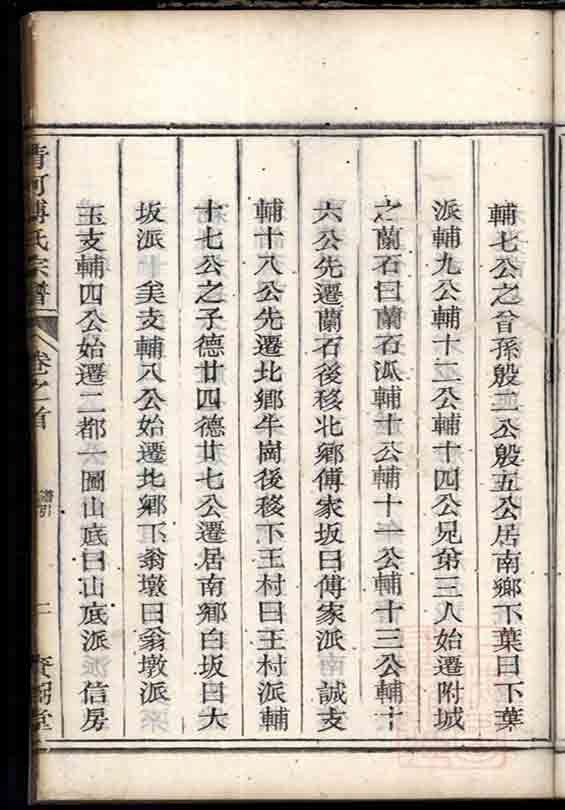 輔七公之曾孫殷二公殷五公居南鄉下葉曰下葉
派輔九公輔十二公輔十四公兄弟三人始遷附城
之蘭石曰蘭石派輔十公輔十一公輔十三公輔十
六公先遷蘭石後移北鄉傅家坂曰傅家派 誠支
輔十八公先遷北鄉牛崗後移下王村曰王村派輔
十七公之子德廿四德廿七公遷居南鄉白坂曰大
坂派 矣支輔八公始遷北鄉下翁墩曰翁墩派
玉支輔四公始遷二都一圖山底曰山底派 信房
清河傅氏宗譜
卷之首
譜引
二
堂